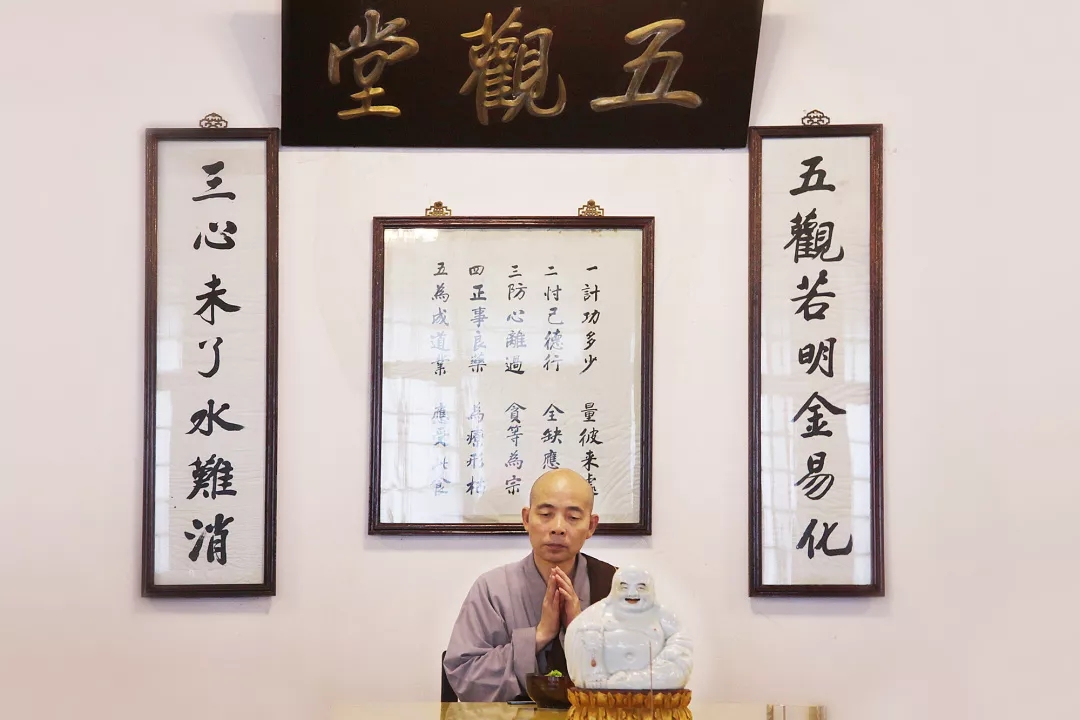 五觀堂
五觀若明金易化
一計功多少 量彼来處
二忖己德行 全缺應
三防心離過 貪等為宗
四正事良藥 為療形枯
五為成道業 應受此食
三心未了水難消